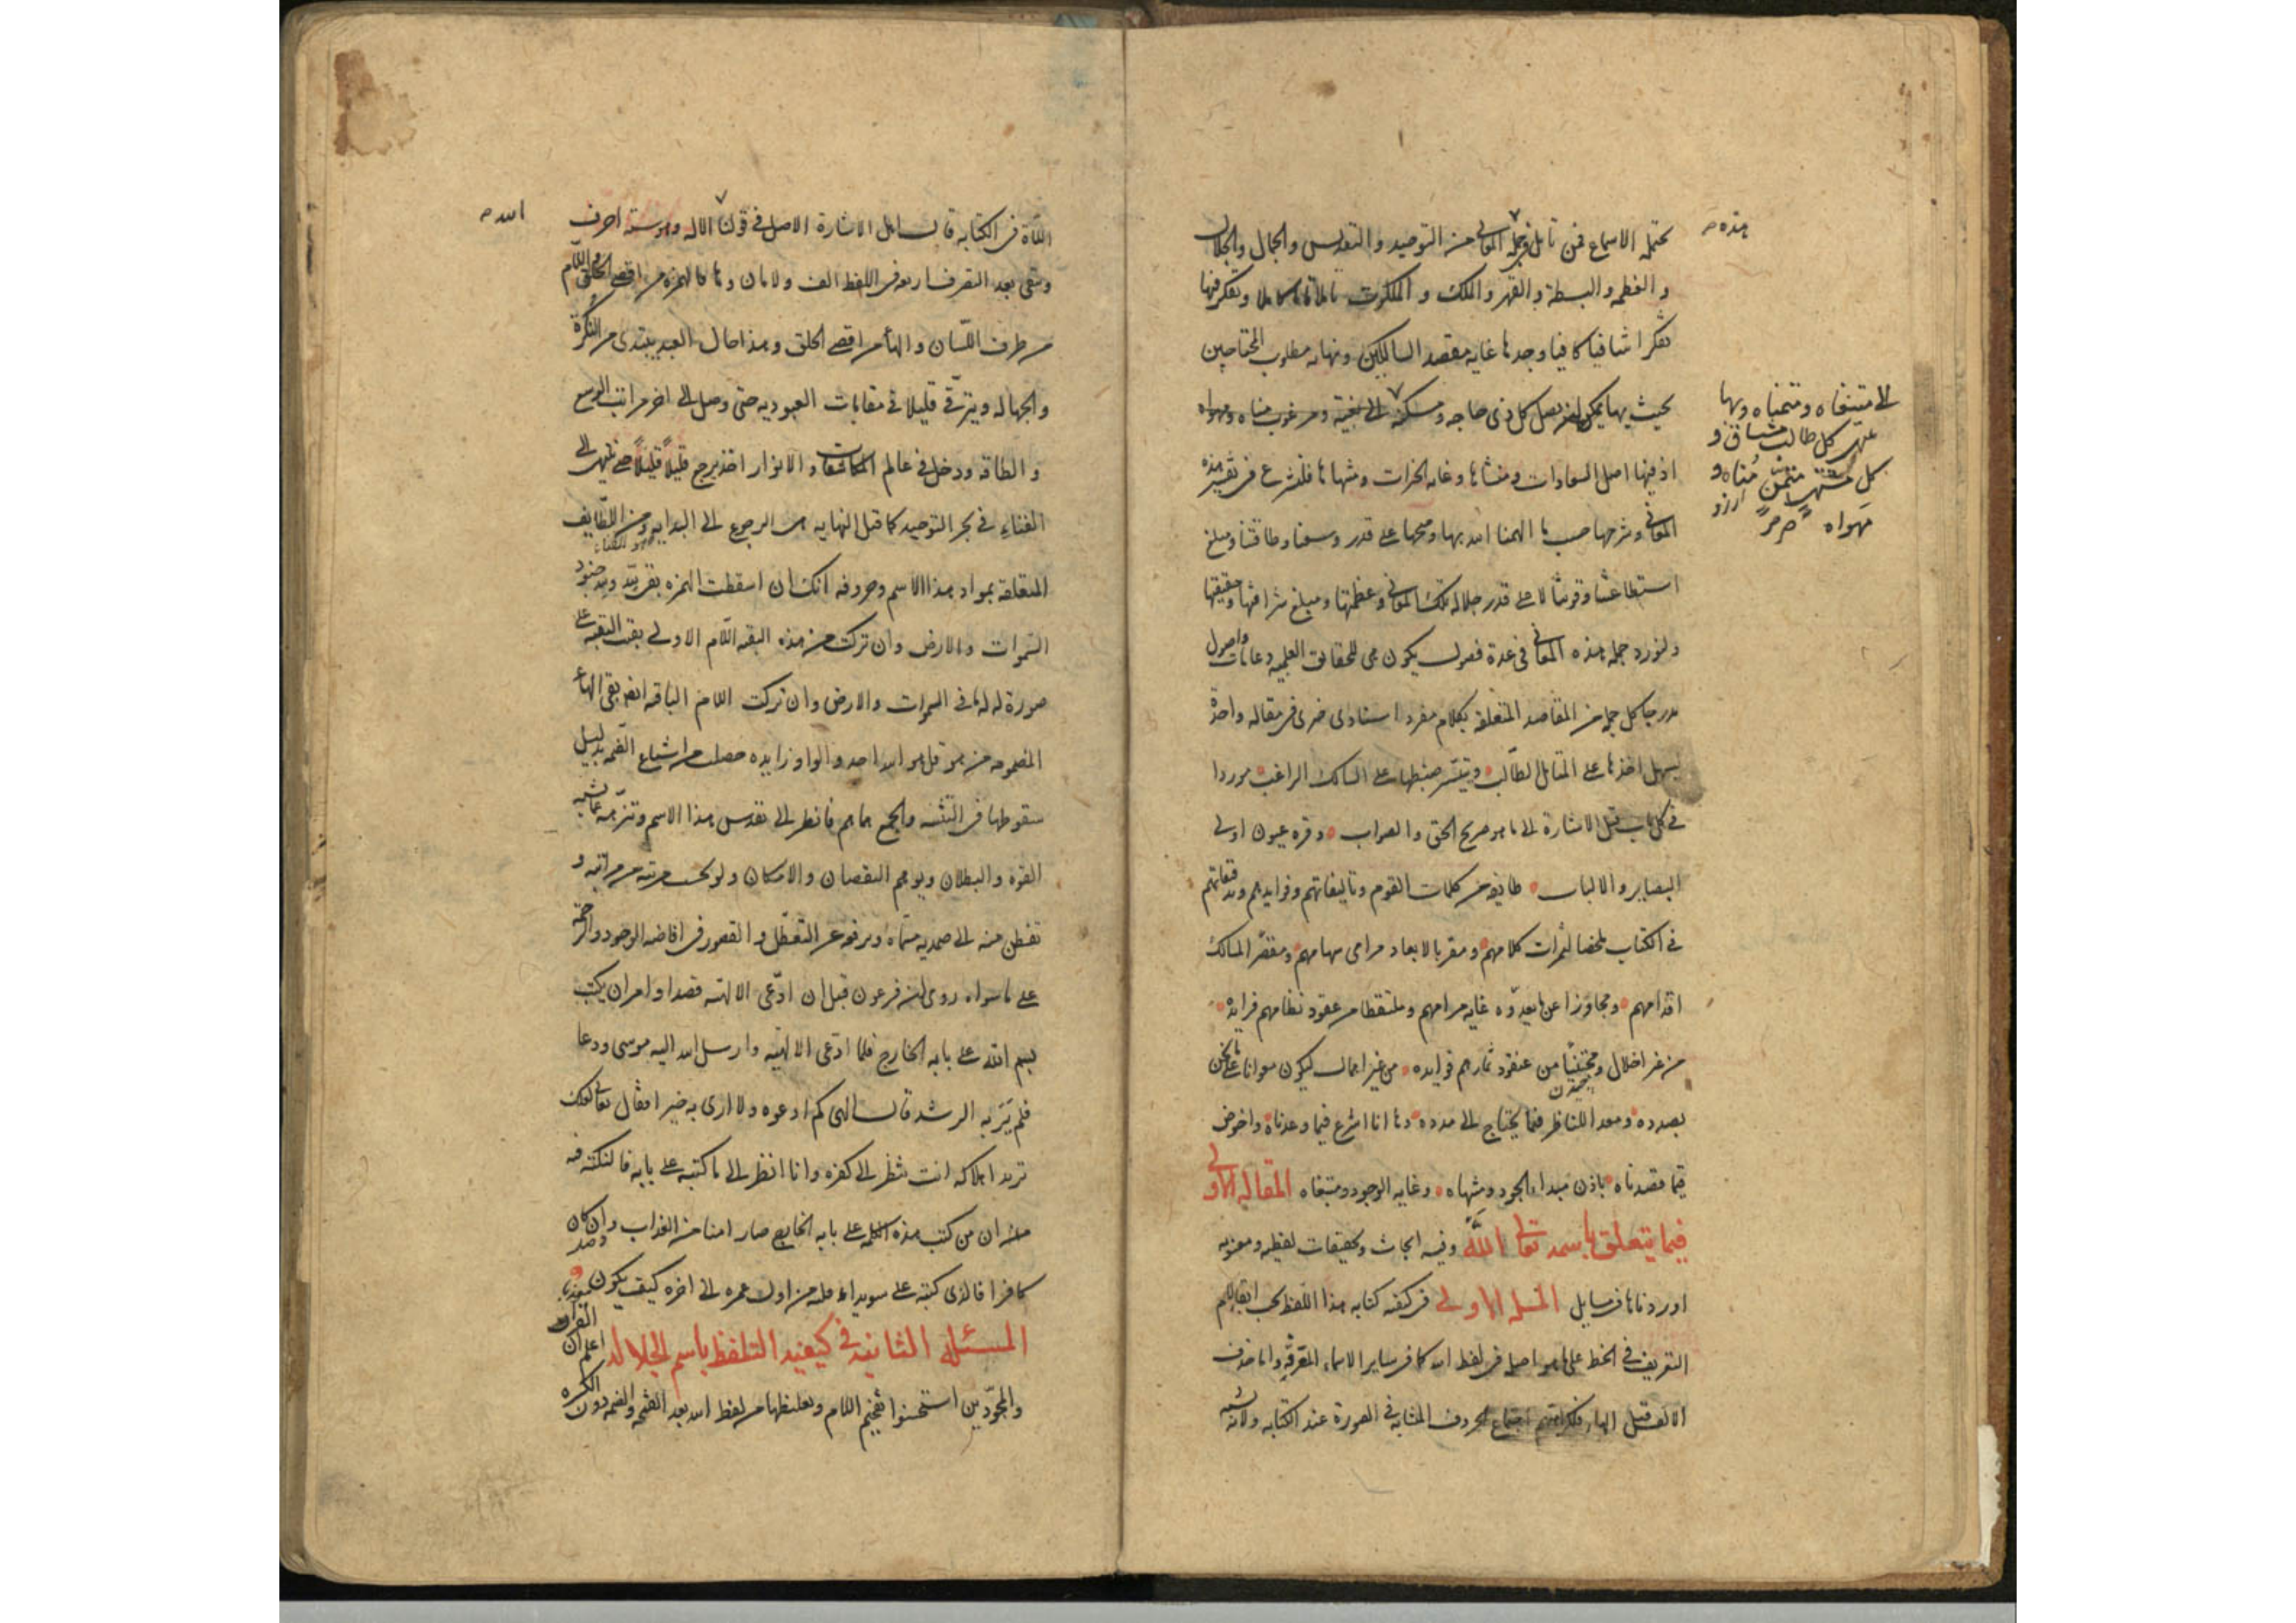 تحتمله الاسماع فمن تامل في جملة المعاني من التوحيد والتقديس والجمال والجلال
هذه
والعظمه والبسطة والقهر والملك والملكوت تاملا كاملا وتفكر فيها
تفكرا شافيا كافيا وجدها غايه مقصد السالكين ونهايه مطلوب المحتاجين
بحيث بها يمكن ان يصل كل ذي حاجه ومسكنه الى بغيته ومرغوب مناه ومهواه
الى متبغاه ومتمناه وبها
كل طالب مشتاق و
كل متمن مناه و
مهواه
اذ فيها اصل السعادات ومنشاها وغايه الخيرات ومنتهاها فلنشرع في تفسير هذه
المعاني وشرحها حسب ما الهمنا الله بها ومنحها على قدر وسعنا وطاقتنا ومبلغ
استطاعتنا وقوتنا لا على قدر جلاله تلك المعاني وعظمتها ومبلغ شرافتها وحقيقتها
ولنورد جمله هذه المعاني في عدة فصول يكون هي للحقائق العلميه دعامات واصول
مدرجا كل جمله من المقاصد المتعلقه بكلام مفرد استنادي خبري في مقاله واحدة
ليسهل اخذها على المتامل الطالب وتيسر ضبطها على السالك الراغب موردا
في كل باب قبل الاشارة الى ما هو صريح الحق والصواب وقره عيون اولى
البصاير والالباب طايفه من كلمات القوم وتاليفاتهم وفوايدهم وتدقيقاتهم
في الكتاب ملخصا لثمرات كلامهم ومقربا لابعاد مرامى سهامهم ومقصر المسالك
اقدامهم ومجاوزا عن ما يعدوه غايه مرامهم وملتقطا من عقود نظامهم فرايده
من غير اخلال ومجتنيا من عنقود ثمارهم فوايده من غير اهمال ليكون معوانا على ما نحن
بصدده ومعدا للناظر فيما يحتاج الى مدده وها انا اشرع فيما وعدناه واخوض
فيما قصدناه باذن مبداء الجود ومنتهاه وغايه الوجود ومبتغاه المقاله الاولى
فيما يتعلق باسمه تعالى الله وفيه ابحاث وتحقيقات لفظيه ومعنويه
اوردناها في مسايل المسئله الاولى في كيفيه كتابه هذا اللفظ يجب ابقاء لام
التعريف في الخط على ما هو اصله في لفظ الله كما في ساير الاسماء المعرفه واما حذف
الالف قبل الهاء فلكراهتهم اجتماع الحروف المتشابهه في الصورة عند الكتابه ولانه يشبه
اللاة في الكتابه قال اهل الاشارة الاصل في قولنا الاله وهو سته احرف
الله
ويبقى بعد التصرف اربعه في اللفظ الف ولامان وها فالهمزه من اقصى الحلق واللام
من طرف اللسان والهاء من اقصى الحلق وهذا حال العبد يبتدى من النكرة
والجهاله ويترقى قليلا في مقامات العبوديه حتى وصل الى اخر مراتب الوسع
والطاقه ودخل في عالم المكاشفات والانوار اخذ يرجع قليلا قليلا حتى ينتهى الى
الفناء في بحر التوحيد كما قيل النهايه هى الرجوع الى البدايه ومن اللطايف
المتعلقه بمواد هذا الاسم وحروفه انك ان اسقطت الهمزه بقى لله ولله جنود
السموات والارض وان تركت من هذه البقيه اللام الاولى بقيت البقيه على
صورة له له ما في السموات والارض وان تركت اللام الباقيه ايضا بقى الهاء
المضمومه من هو قل هو الله احد والواو زايده حصلت من اشباع الضمه بدليل
سقوطها في التثنيه والجمع هما هم فانظر الى تقدس هذا الاسم وتنزهه عما يشبه
القوة والبطلان ويوهم النقصان والامكان ولو بحسب مرتبه من مراتبه و
تفطن منه الى صمديه مسماه وترفعه عن التعطل والقصور في افاضه الوجود والرحمة
على ما سواه روى ان فرعون قبل ان ادعى الالهيه قصدا وامر ان يكتب
بسم الله على بابه الخارج فلما ادعى الالهيه وارسل الله اليه موسى ودعا
فلم ير به الرشد قال الهى كم ادعوه ولا ارى به خيرا فقال تعالى لعلك
تريد اهلاكه انت تنظر الى كفره وانا انظر الى ما كتبه على بابه فالنكته فيه
ان من كتب هذه الكلمه على بابه الخارج صار امنا من العذاب وان كان
كافرا فالذى كتبه على سويداء قلبه من اول عمره الى اخره كيف يكون
المسئله الثانيه في كيفيه التلفظ باسم الجلاله اعلم ان
القراء
والمجودين استحسنوا تفخيم اللام وتغليظها من لفظ الله بعد الفتحه والضمه دون الكسره